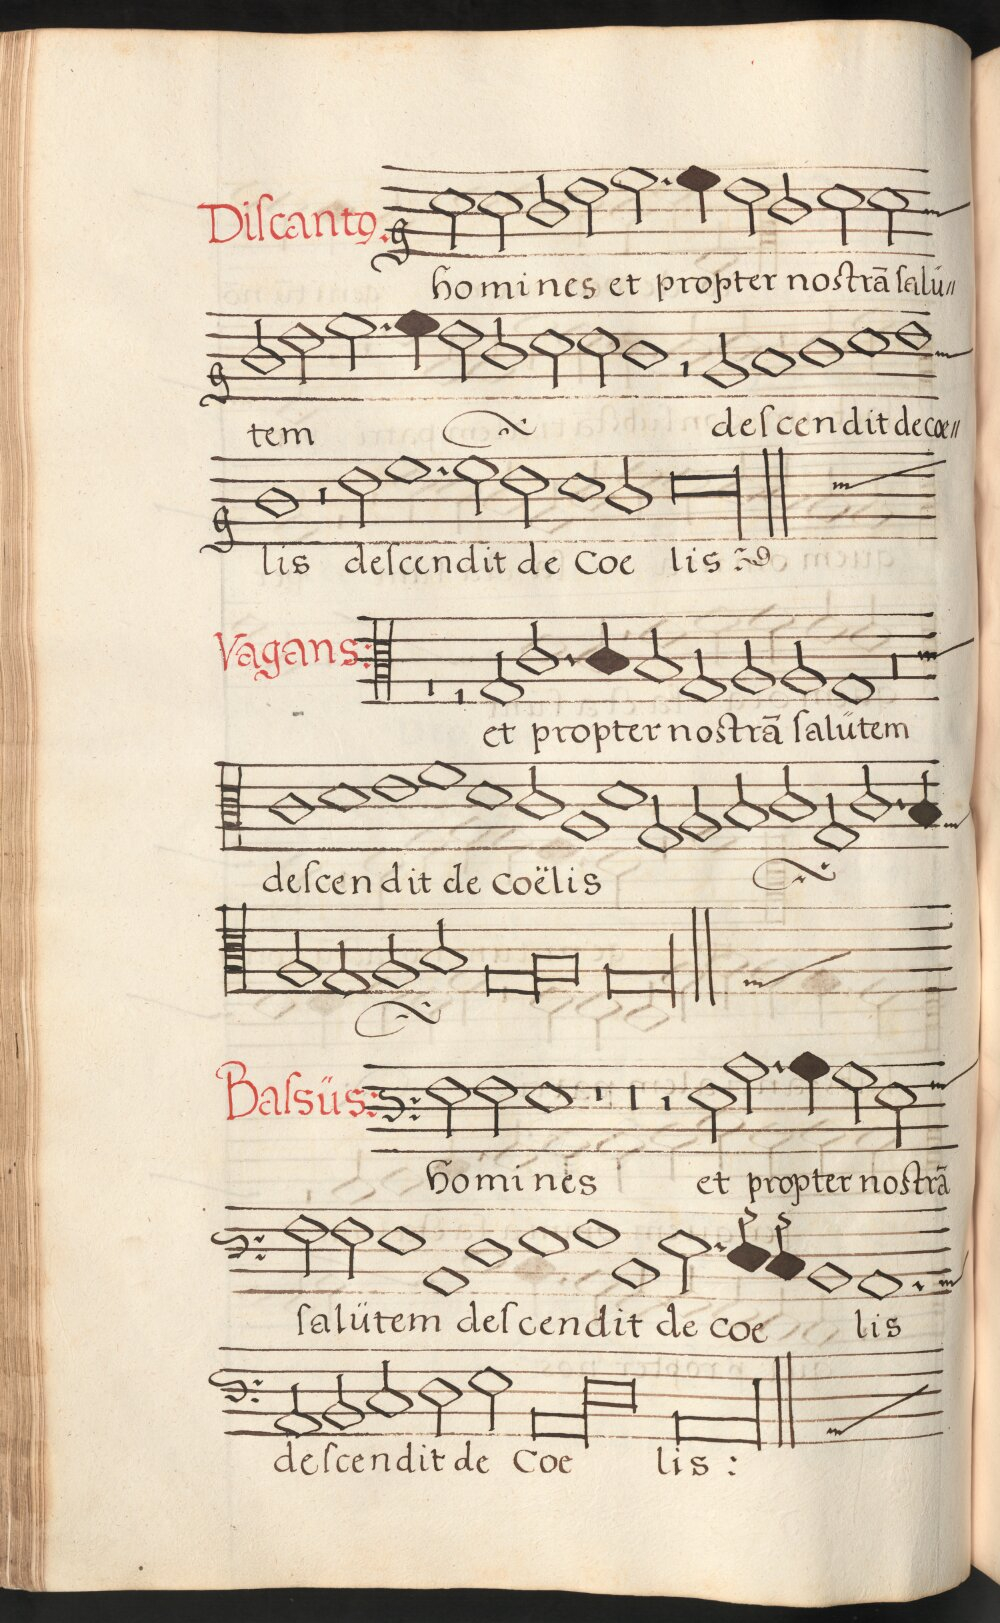 Diſcanto.
homines et propter noſtrā ſalü〃
tem deſcendit de coe〃
lis deſcendit de Coe lis
Vagans:
et propter noſtrā ſalütem
deſcendit de coëlis
Baſsüs:
homines et propter noſtrā
ſalütem deſcendit de coe lis
deſcendit de Coe lis :